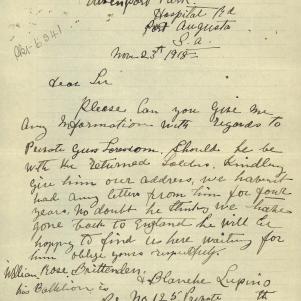 Davenport Park.
Hospital Rd
Port Augusta
S.A
Nov 23rd 1918
Dear Sir
Please Can you Give Me
Any Information With regards to
Private Guss Should he be
With the Returned Soldiers. Kindley
Give him our address, we haven't
had Any letters from him for four
Years. No doubt he thinks we have
gone back to England he will be
happy to find us here waiting for
him oblige yours respectfully.
William Rose Brittenden
& Blanche Lupino
his Battelion is
No 125 Private